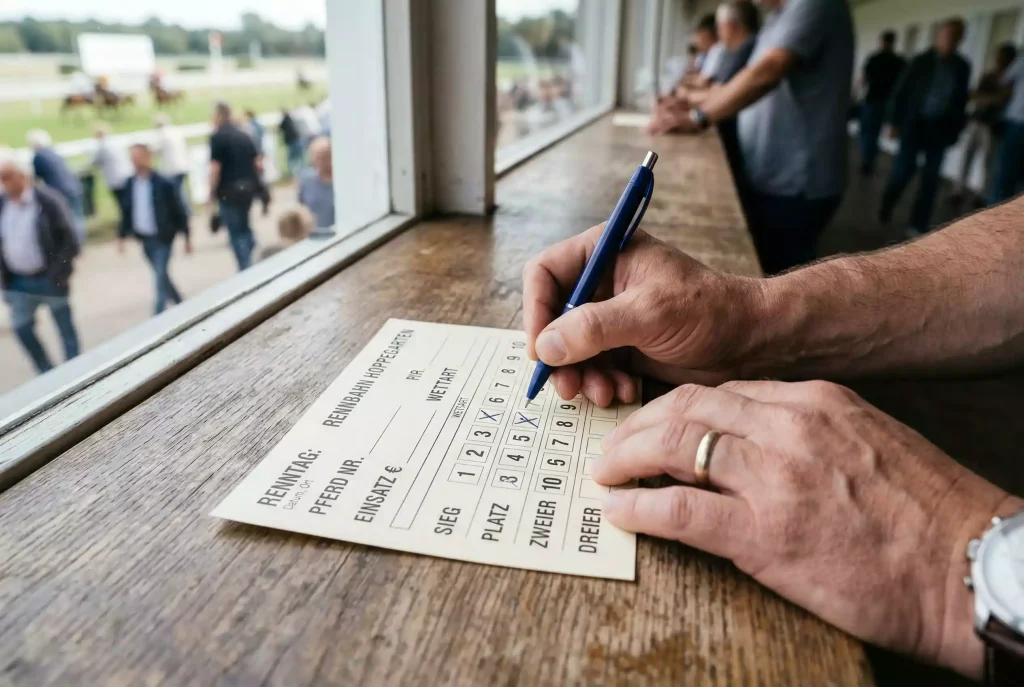 RENNBAHN HOPPEGARTEN
RENNTAG:
Datum, Ort
PFERD NR.
P/R.
EINSATZ €
WETTART
WETTART
SIEG 1 2 3 X 6 7 8 9 10
PLATZ 3 4 5 X 7
ZWEIER 10 5 7 8 9
DREIER